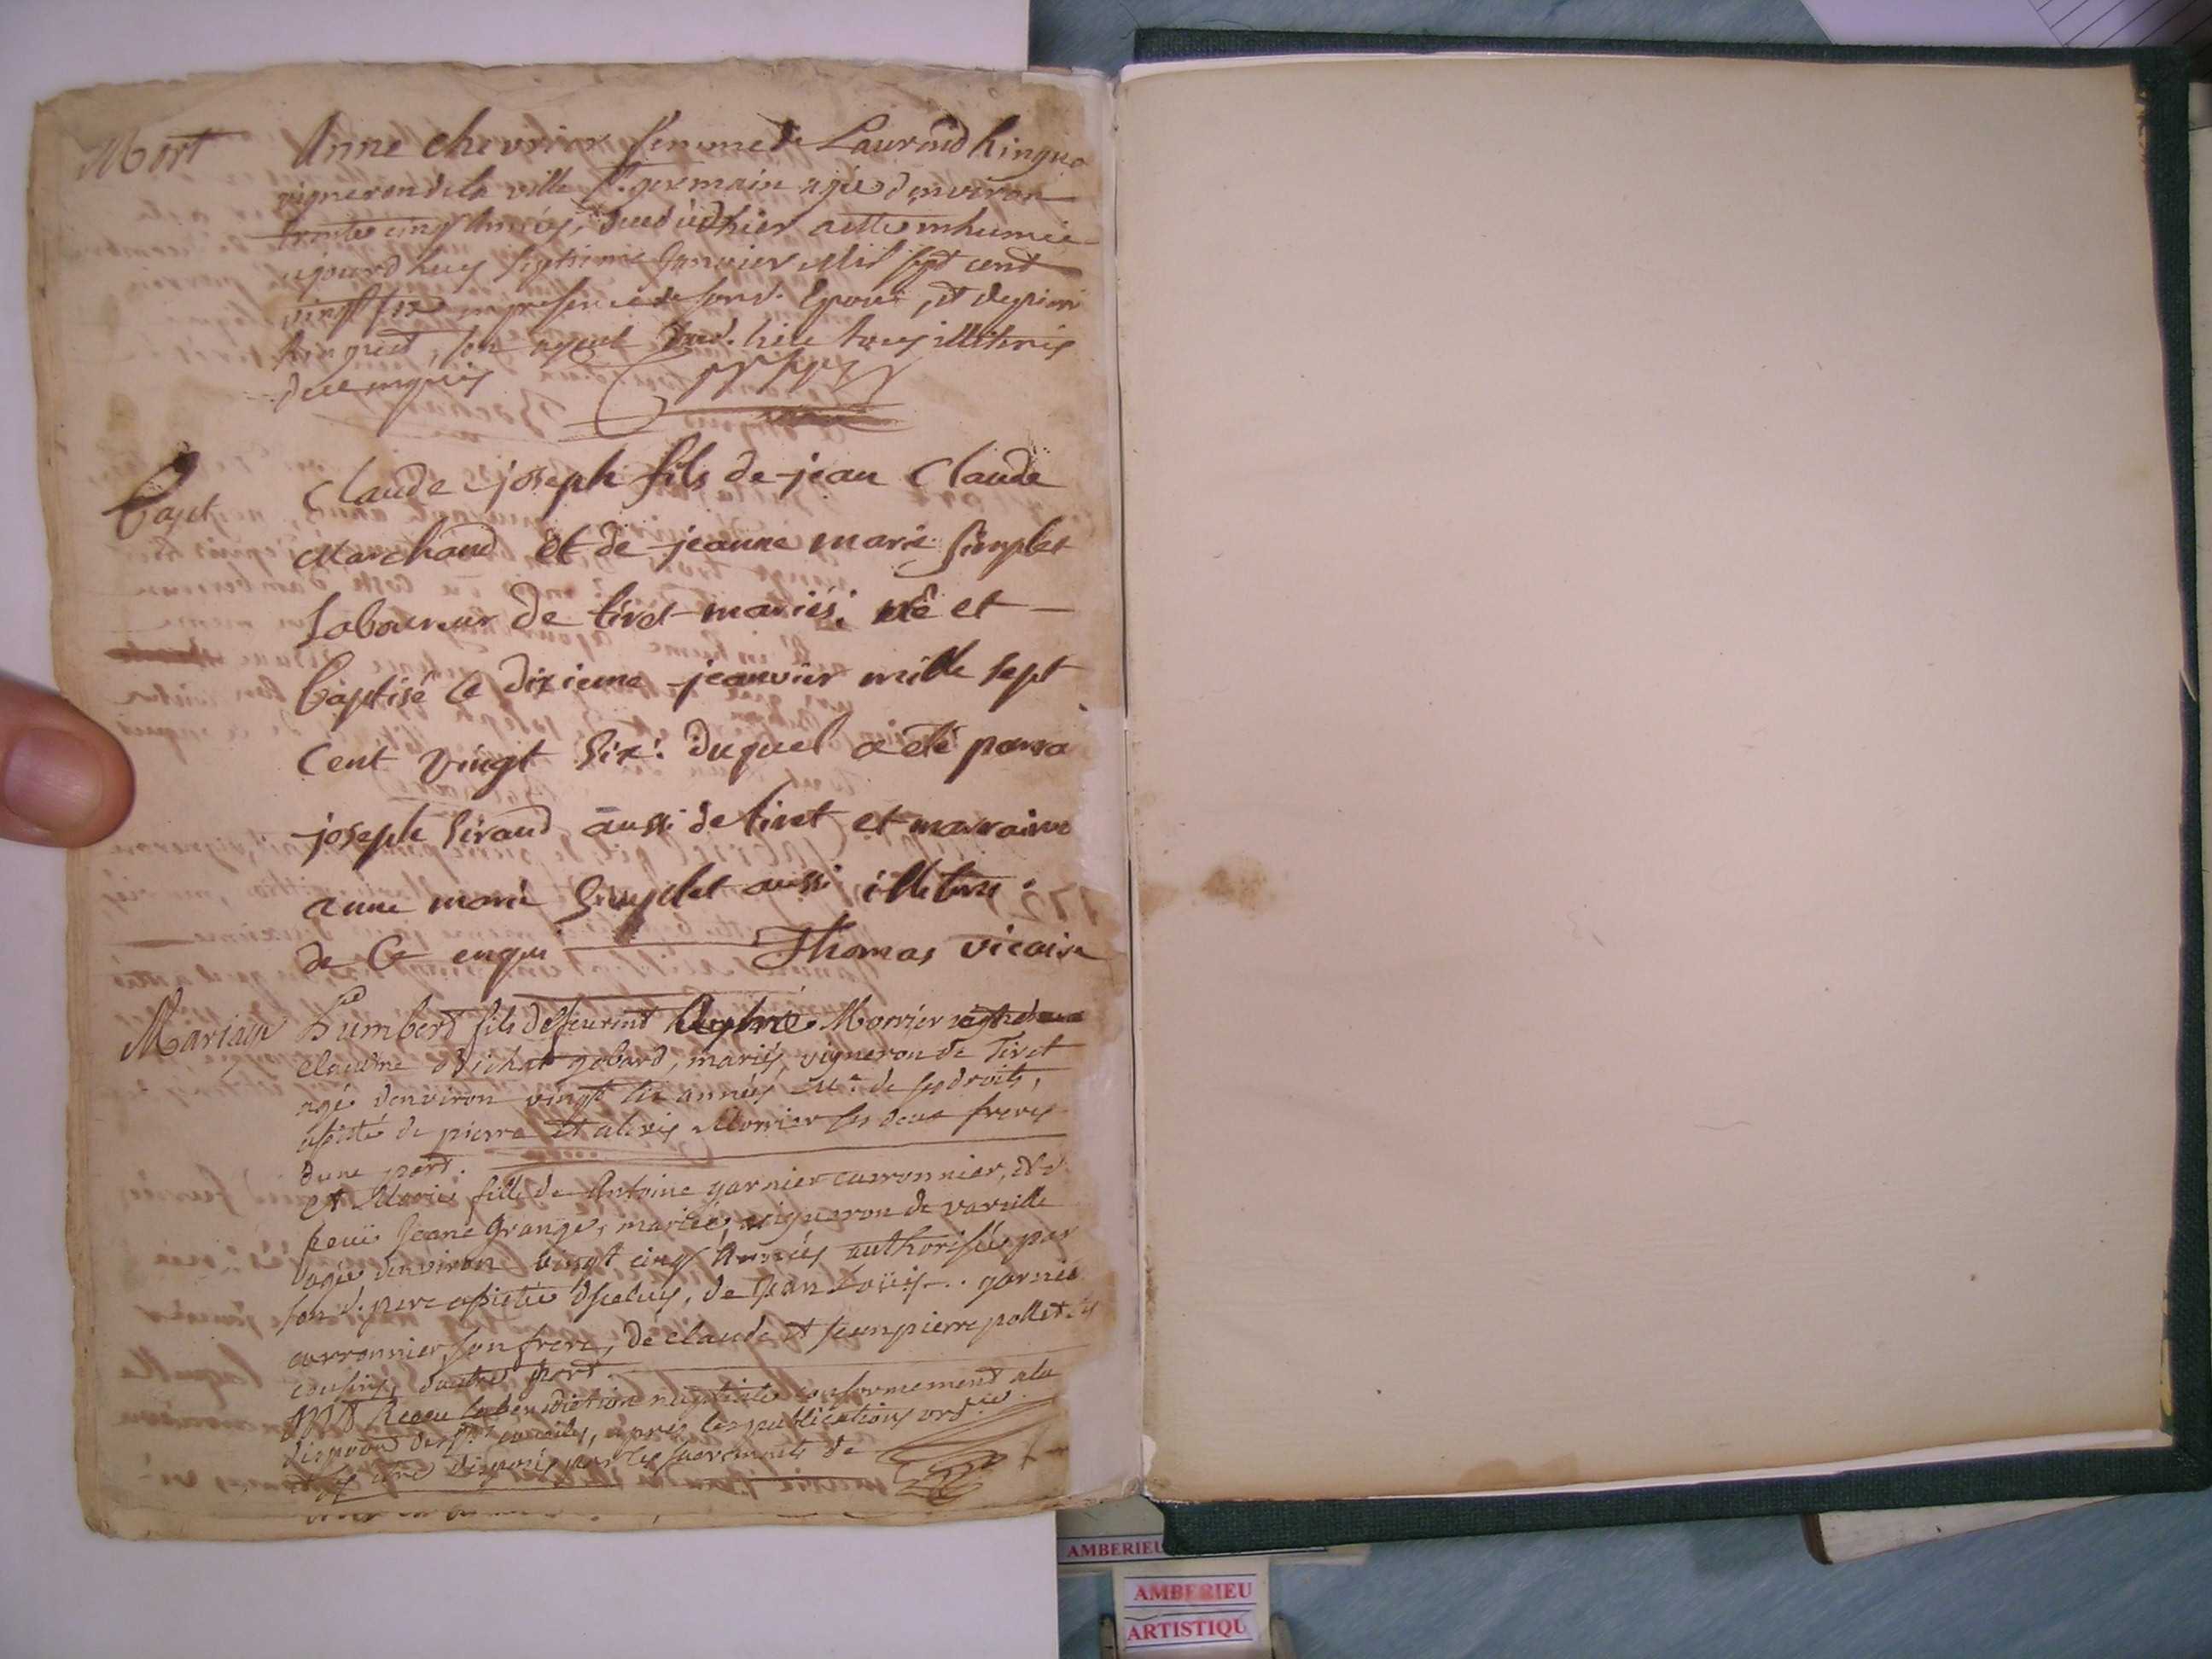 Mort
Anne chevrier femme de Laurend hingue
vigneron de la ville St. germain agée d'environ
trente cinq années, decedée dhier a etté inhumée
ajourdhuy septieme Janvier Mil sept cent
vingt six en presence de sond. Epoux, et de pierre
hinguet, son tous illiterés
de ce enquis
Bapt
Claude joseph fils de jean Claude
Marchand et de jeanne marie simplet
Laboureur de tiret mariés; né et
baptisé le dixieme jeanvier mille sept
Cent vingt six: duquel a été parra
joseph siraud aussi de tiret et marraine
anne marie simplet aussi illetere
de Ce enqui Thomas vicaire
Mariage
humbert fils de feu Morrier
claudine gobard, mariés, vigneron de Tiret
agé denviron vingt six années Me. de ses droits,
assisté de pierre et alexis Morrier ses deux freres
dune part.
et Marie fille de Antoine garnier carronnier, et d
feüe Jeane Grange, mariés, vigneron de vareille
agée denviron vingt cinq Années authorisée par
son d. pere assistée diceluy, de Jean Loüis garnie
carronnier son frere, de claude et Jeanpierre pollet
cousins, dautre part.
ont Receu la benediction nuptiale conformement a la
après les publications
disposés par les sacrements de
AMBERIEU
AMBERIEU
ARTISTIQU